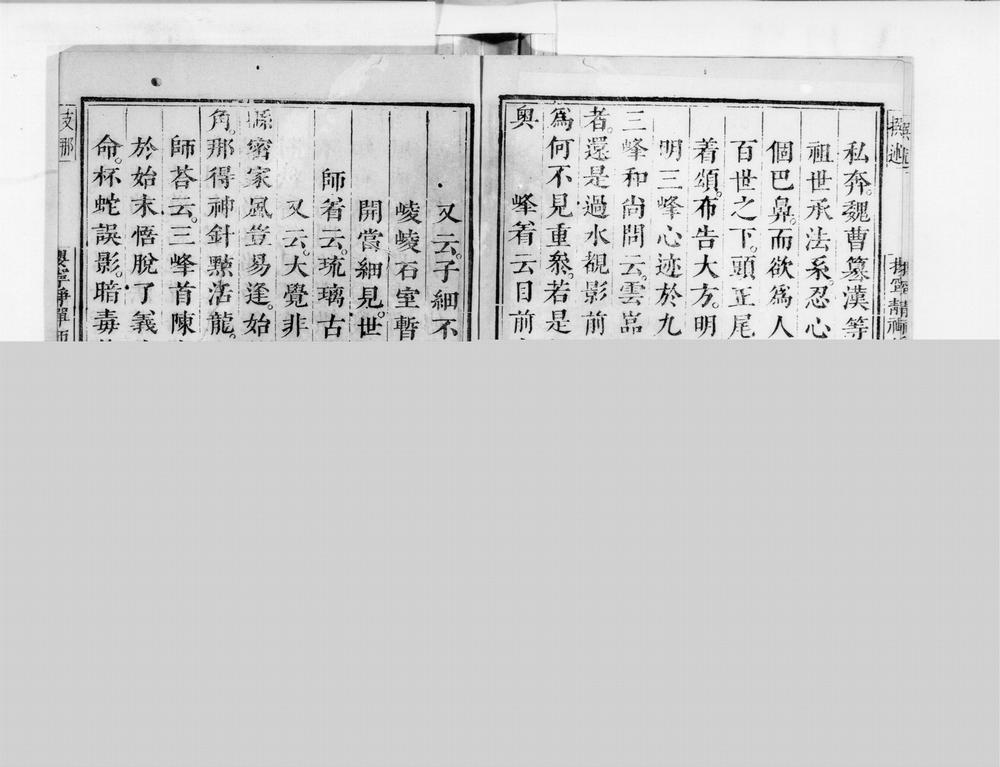 私奔。魏曹篡漢等
祖世承法系。忍心
個巴鼻。而欲爲人
百世之下。頭正尾
着頌。布告大方。明
明三峰心迹於九
三峰和尚問云。雲嵒
者。還是過水覩影前
爲何不見重叅。若是
奥　　峰着云目前
又云。子細不
崚崚石室暫
開嘗細見。世
師着云。琉璃古
又云。大覺非
綿密家風豈易逢。始
角。那得神針㸃活龍。
師荅云。三峰首陳
於始末悟脫了義
命。杯蛇誤影。暗毒
支那